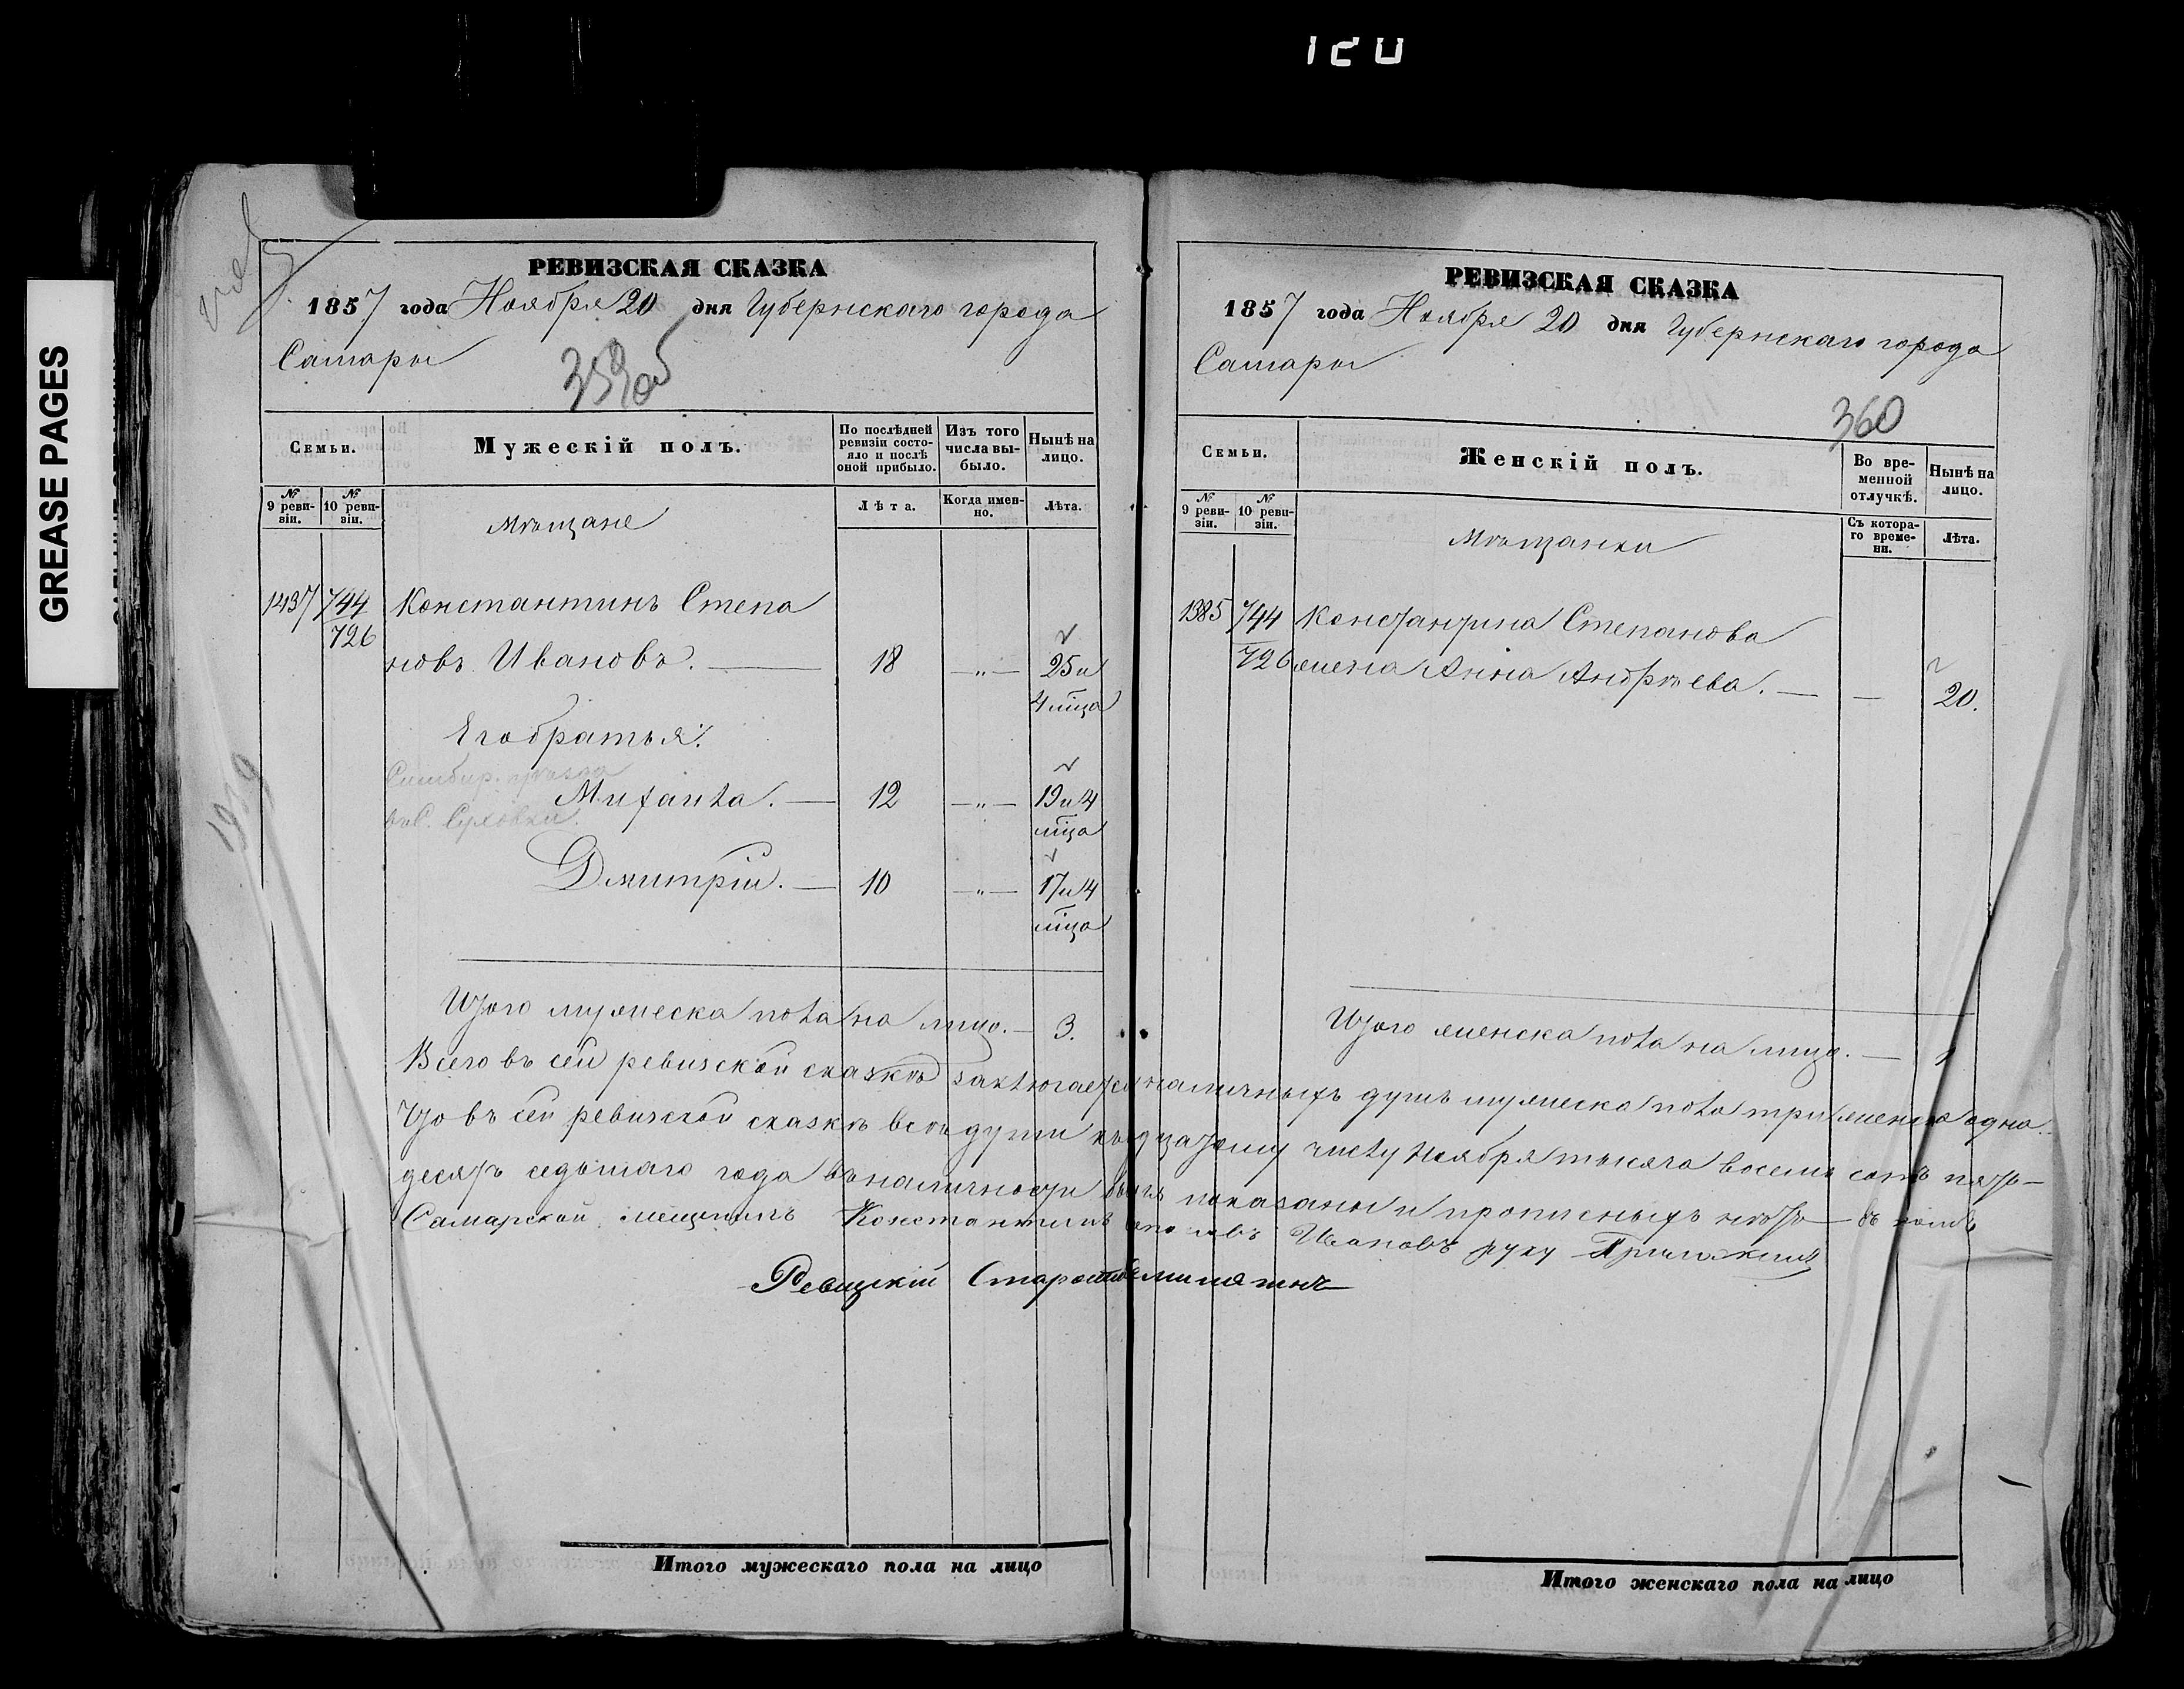 120
GREASE PAGES
РЕВИЗСКАЯ СКАЗКА
1857 года Ноября 20 дня Губернскаго города
Самары
359об
Семьи.
Мужескій полъ.
По послѣдней ревизіи состо-
яло и послѣ
оной прибыло.
Изъ того
числа вы-
было.
Нынѣ на
лицо.
№
9 реви-
зіи.
№
10 реви-
зіи.
мѣщане
Лѣта.
Когда имен-
но.
Лѣта.
1437 744 Константинъ Степа
726
новъ Ивановъ. — 18 —„— 25 и
4 мца
Его братья:
Симбир. уѣзда
Михаила. — 12 —„— 19 и 4
въ С. мца
Дмитрій. — 10 —„— 17 и 4
мца
Итого мужеска пола на лицо. — 3.
РЕВИЗСКАЯ СКАЗКА
1857 года Ноября 20 дня Губернскаго города
Самары
360
Семьи.
Женскій полъ.
Во вре-
менной
отлучкѣ.
Нынѣ на
лицо.
№
9 реви-
зіи.
№
10 реви-
зіи.
Мѣщанки
Съ котора-
го време-
ни.
Лѣта.
1385 744 Константина Степанова
726 жена Анна Андрѣева. — — 20.
Итого женска пола на лицо. — 1
Всего въ сей ревизской сказкѣ заключается наличныхъ душъ мужеска пола три женска одна.
Что въ сей ревизской сказкѣ всѣ души къ двадцатому числу Ноября тысяча восемь сотъ пять-
десятъ седьмаго года въ наличности были показаны и прописныхъ нѣтъ — въ томъ
Самарской мещанинъ Константинъ Ивановъ руку Приложилъ
Ревизскій Староста
Итого мужескаго пола на лицо
Итого женскаго пола на лицо